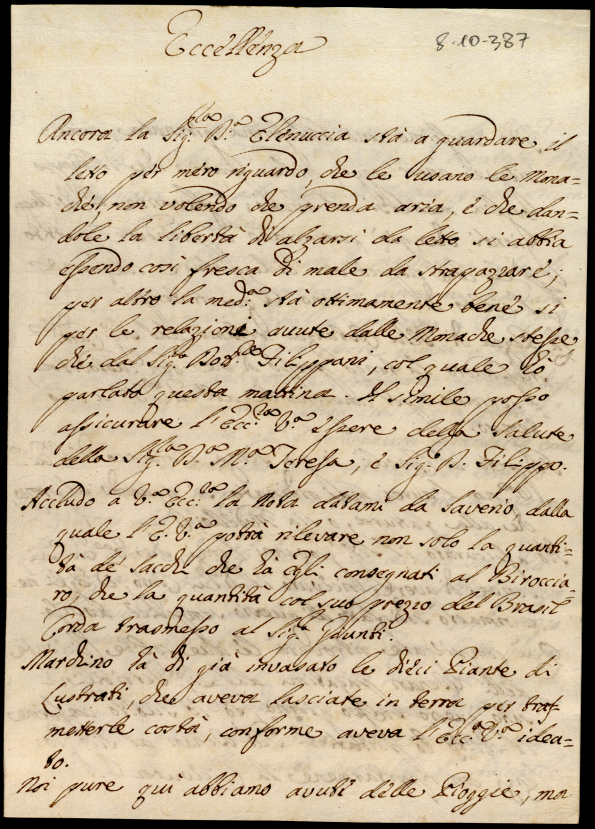 Eccellenza
8-10-387
Ancora la Sig.lla D.a Elenuccia stà a guardare il
letto per mero riguardo, che le susano le Mona=
che, non volendo che prenda aria, è che dan=
dole la libertà di alzarsi da letto si abbia
essendo così fresca di male da strapazzare;
per altro la med.a stà ottimamente bene si
per le relazioni avute dalle Monache stesse
che dal Sig.re Dott.re Filippani, col quale hò
parlato questa mattina. Il simile posso
assicurare l'Ecc.za V.a essere della salute
della Sig.lla D.a M.a Teresa, è Sig.r D. Filippo.
Accludo a V.a Ecc.za la nota datami da Saverio, dalla
quale l'E.V.a potrà rilevare non solo la quanti=
tà de' sacchi che hà egli consegnati al Biroccia=
ro, che la quantità col suo prezzo del Brasil
Corda trasmesso al Sig.r
Marchino hà di già invasato le dieci Piante di
Lustrati, che aveva lasciate in terra per tras=
metterle costà, conforme aveva l'Ecc.a V.a idea=
to.
Noi pure qui abbiamo avuti delle Pioggie, ma